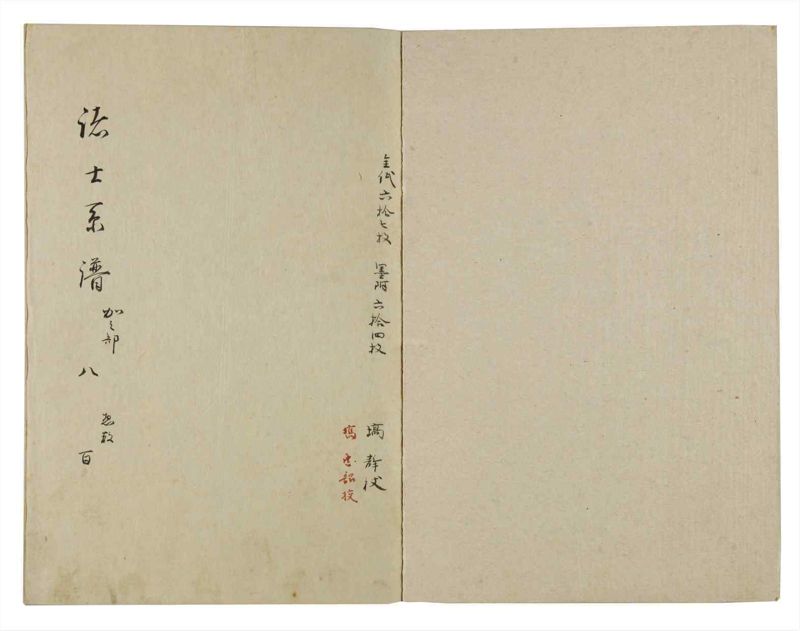 全代六拾七枚 墨附六拾四枚
塙 静 校
塙 忠韶校
諸士系譜 加之部 八 惣数 百